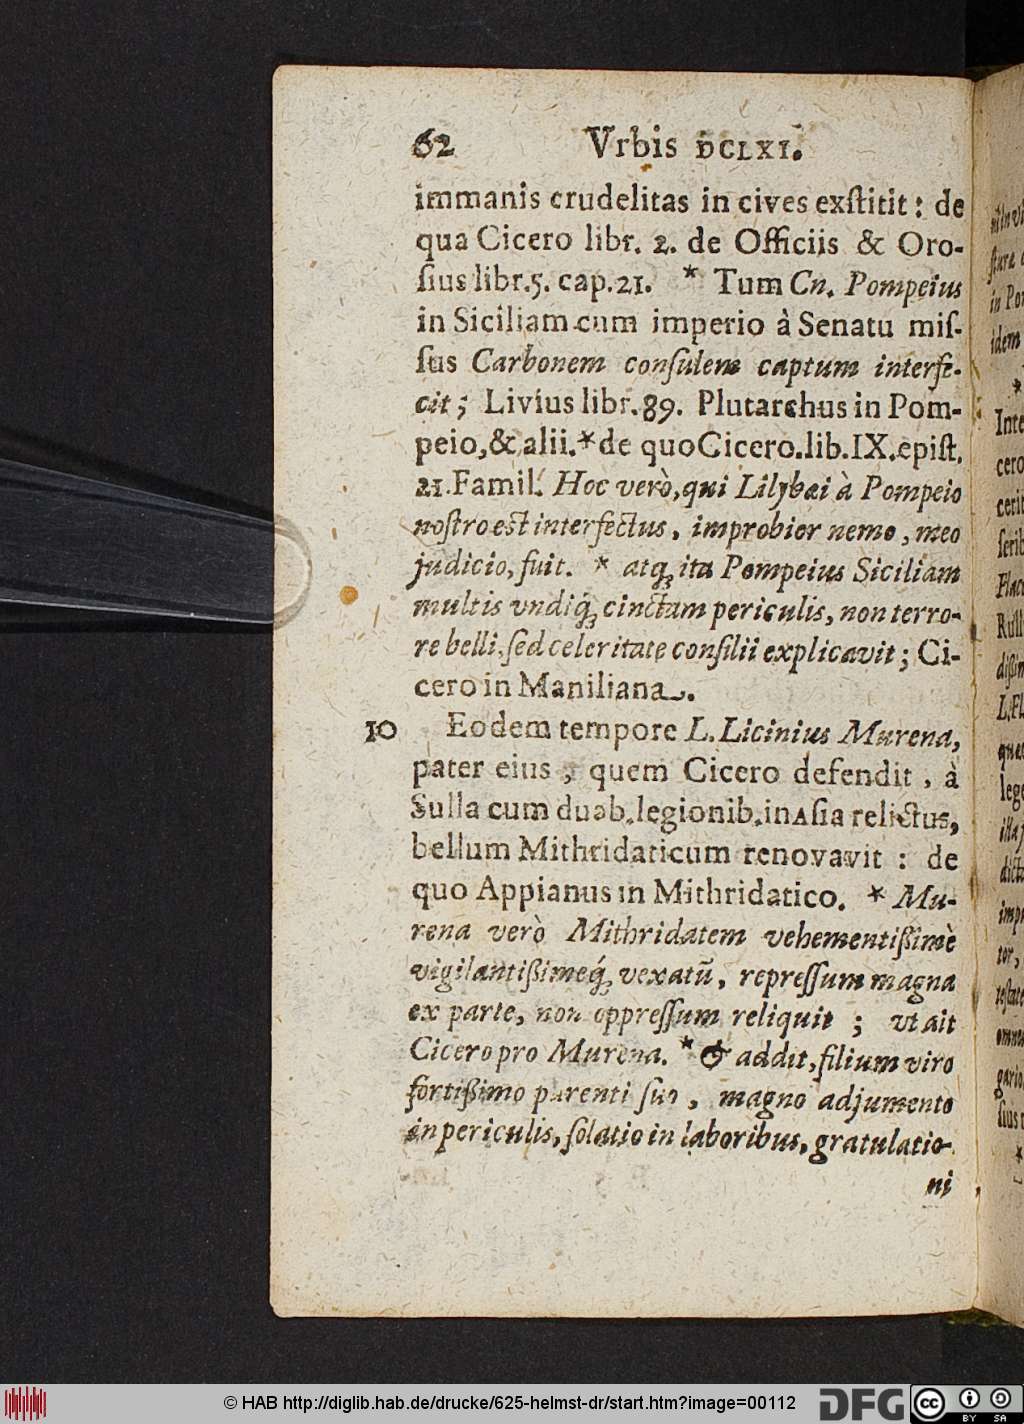 62 Vrbis DCLXI.
immanis crudelitas in cives exſtitit: de
qua Cicero libr. 2. de Officiis & Oro-
ſius libr.5. cap.21. * Tum Cn. Pompeius
in Siciliam cum imperio à Senatu miſ-
ſus Carbonem conſulem captum interfe-
cit; Livius libr. 89. Plutarchus in Pom-
peio,& alii.*de quo Cicero.lib.IX.epiſt.
21.Famil. Hoc verò,qui Lilybæi à Pompeio
noſtro est interfectus, improbior nemo, meo
judicio, fuit. * atq; ita Pompeius Siciliam
multis vndiq́; cinctam periculis, non terro-
re belli, ſed celeritate conſilii explicavit; Ci-
cero in Maniliana.
10 Eodem tempore L. Licinius Murena,
pater eius, quem Cicero defendit, à
Sulla cum duab.legionib.in Aſia relictus,
bellum Mithridaticum renovavit : de
quo Appianus in Mithridatico. * Mu-
rena verò Mithridatem vehementißimè
vigilantißimeq́; vexatū, repreſſum magna
ex parte, non oppreſſum reliquit ; vt ait
Cicero pro Murena. * & addit, filium viro
fortißimo parenti ſuo, magno adjumento
in periculis, ſolatio in laboribus, gratulatio-
ni
© HAB http://diglib.hab.de/drucke/625-helmst-dr/start.htm?image=00112
DFG
cc
BY SA